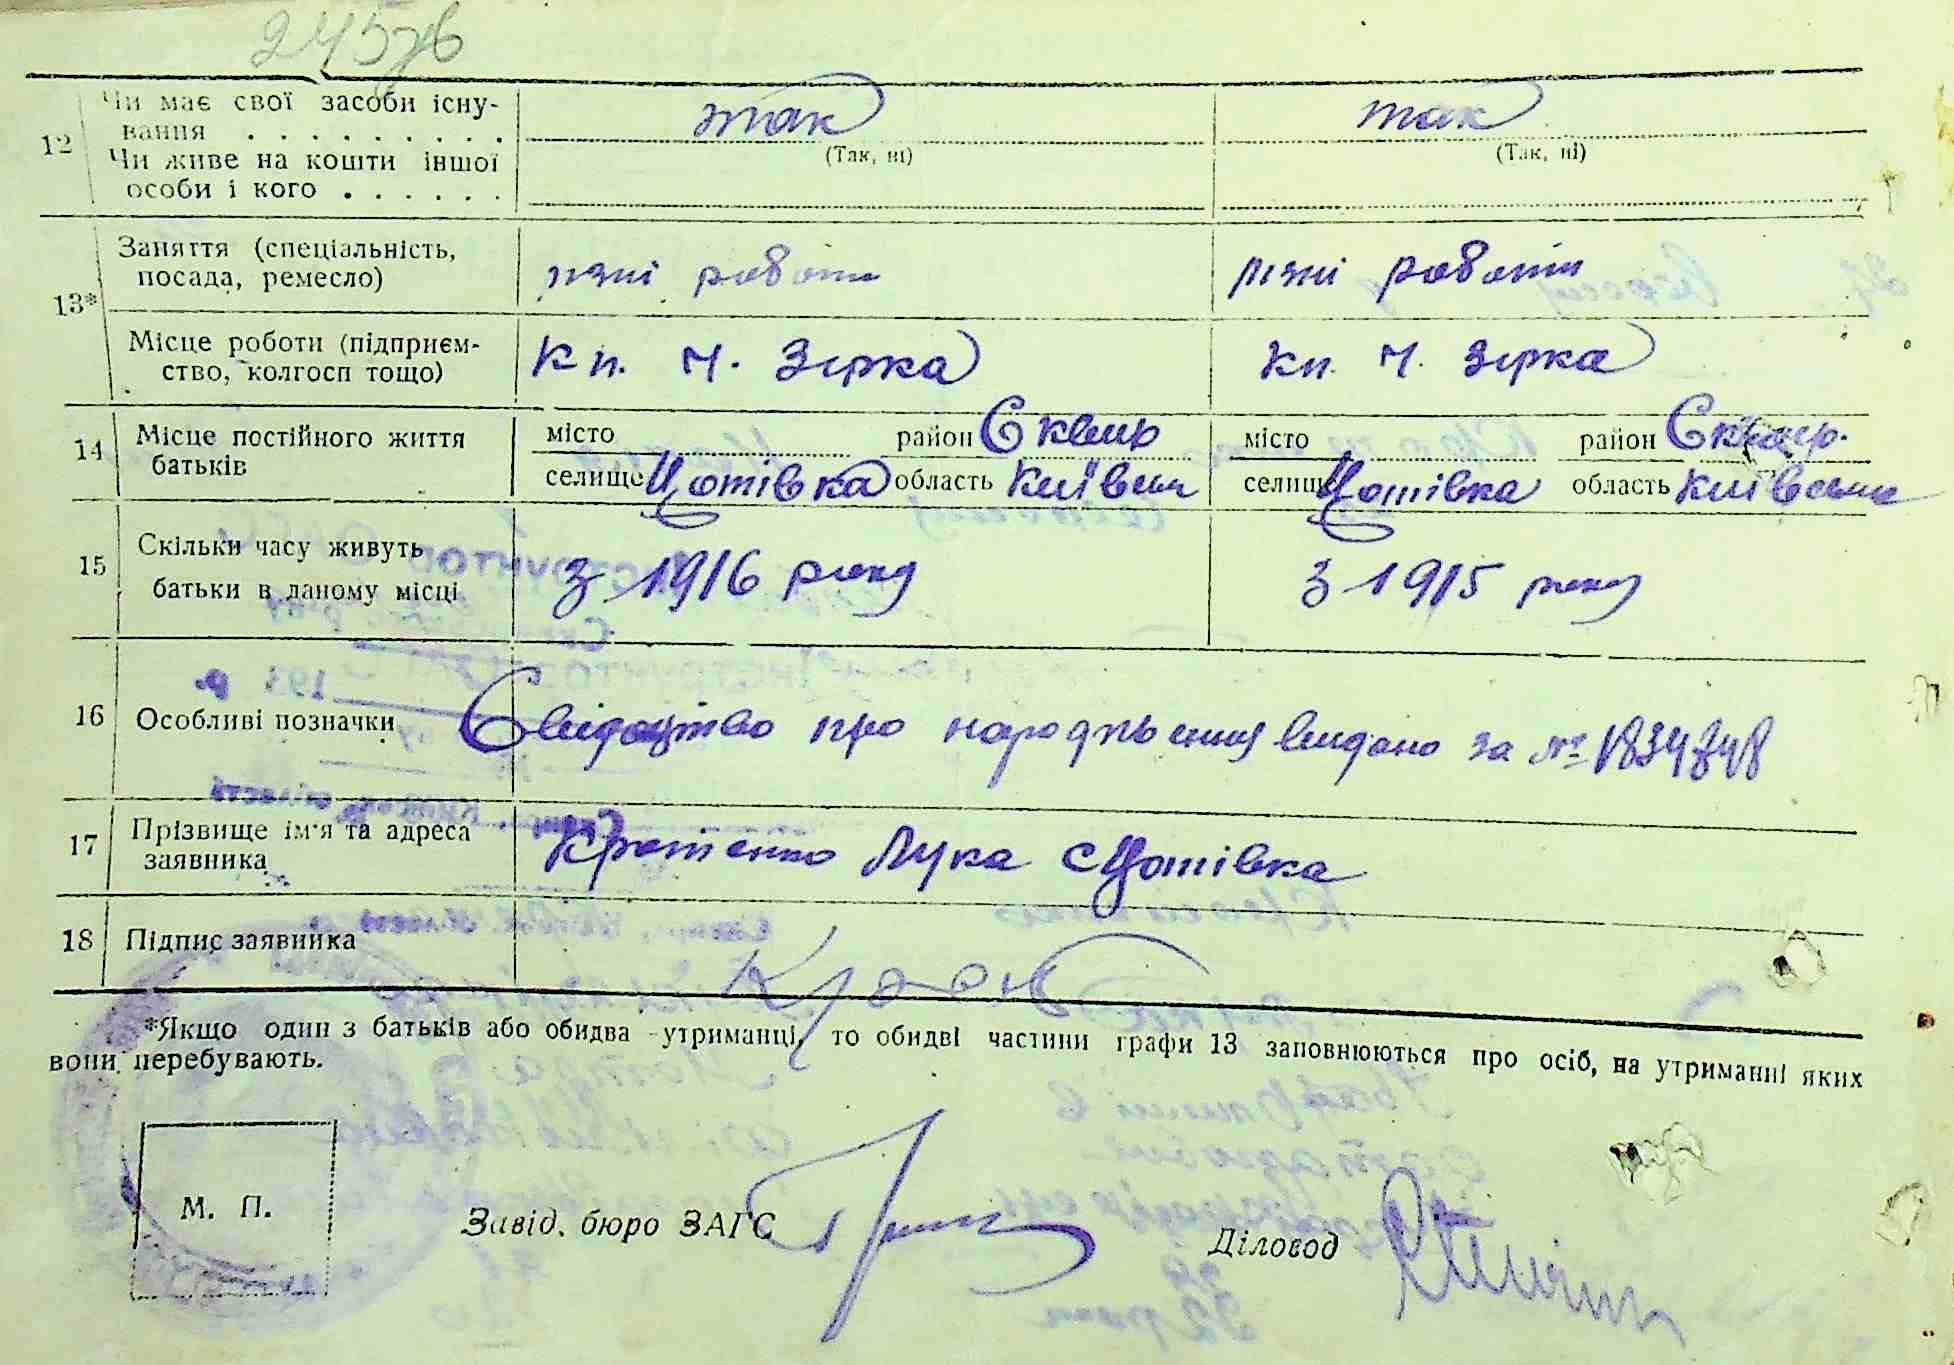 12 Чи має свої засоби існу- так так
вання . . . . . . . . . (Так, ні) (Так, ні)
Чи живе на кошти іншої
особи і кого . . . . . .
13* Заняття (спеціальність, різні роботи різні роботи
посада, ремесло)
Місце роботи (підприєм- кп. Ч. Зірка кп. Ч. Зірка
ство, колгосп тощо)
14 Місце постійного життя місто район Сквир місто район Сквир.
батьків селище Цотівка область Київськ селище Цотівка область Київська
15 Скільки часу живуть з 1916 року з 1915 року
батьки в даному місці
16 Особливі позначки Свідоцтво про народження видано за №
17 Прізвище ім'я та адреса Кротенко Лука с Цотівка
заявника
18 Підпис заявника
*Якщо один з батьків або обидва -утриманці, то обидві частини графи 13 заповнюються про осіб, на утриманні яких
вони перебувають.
М. П.
Завід. бюро ЗАГС
Діловод